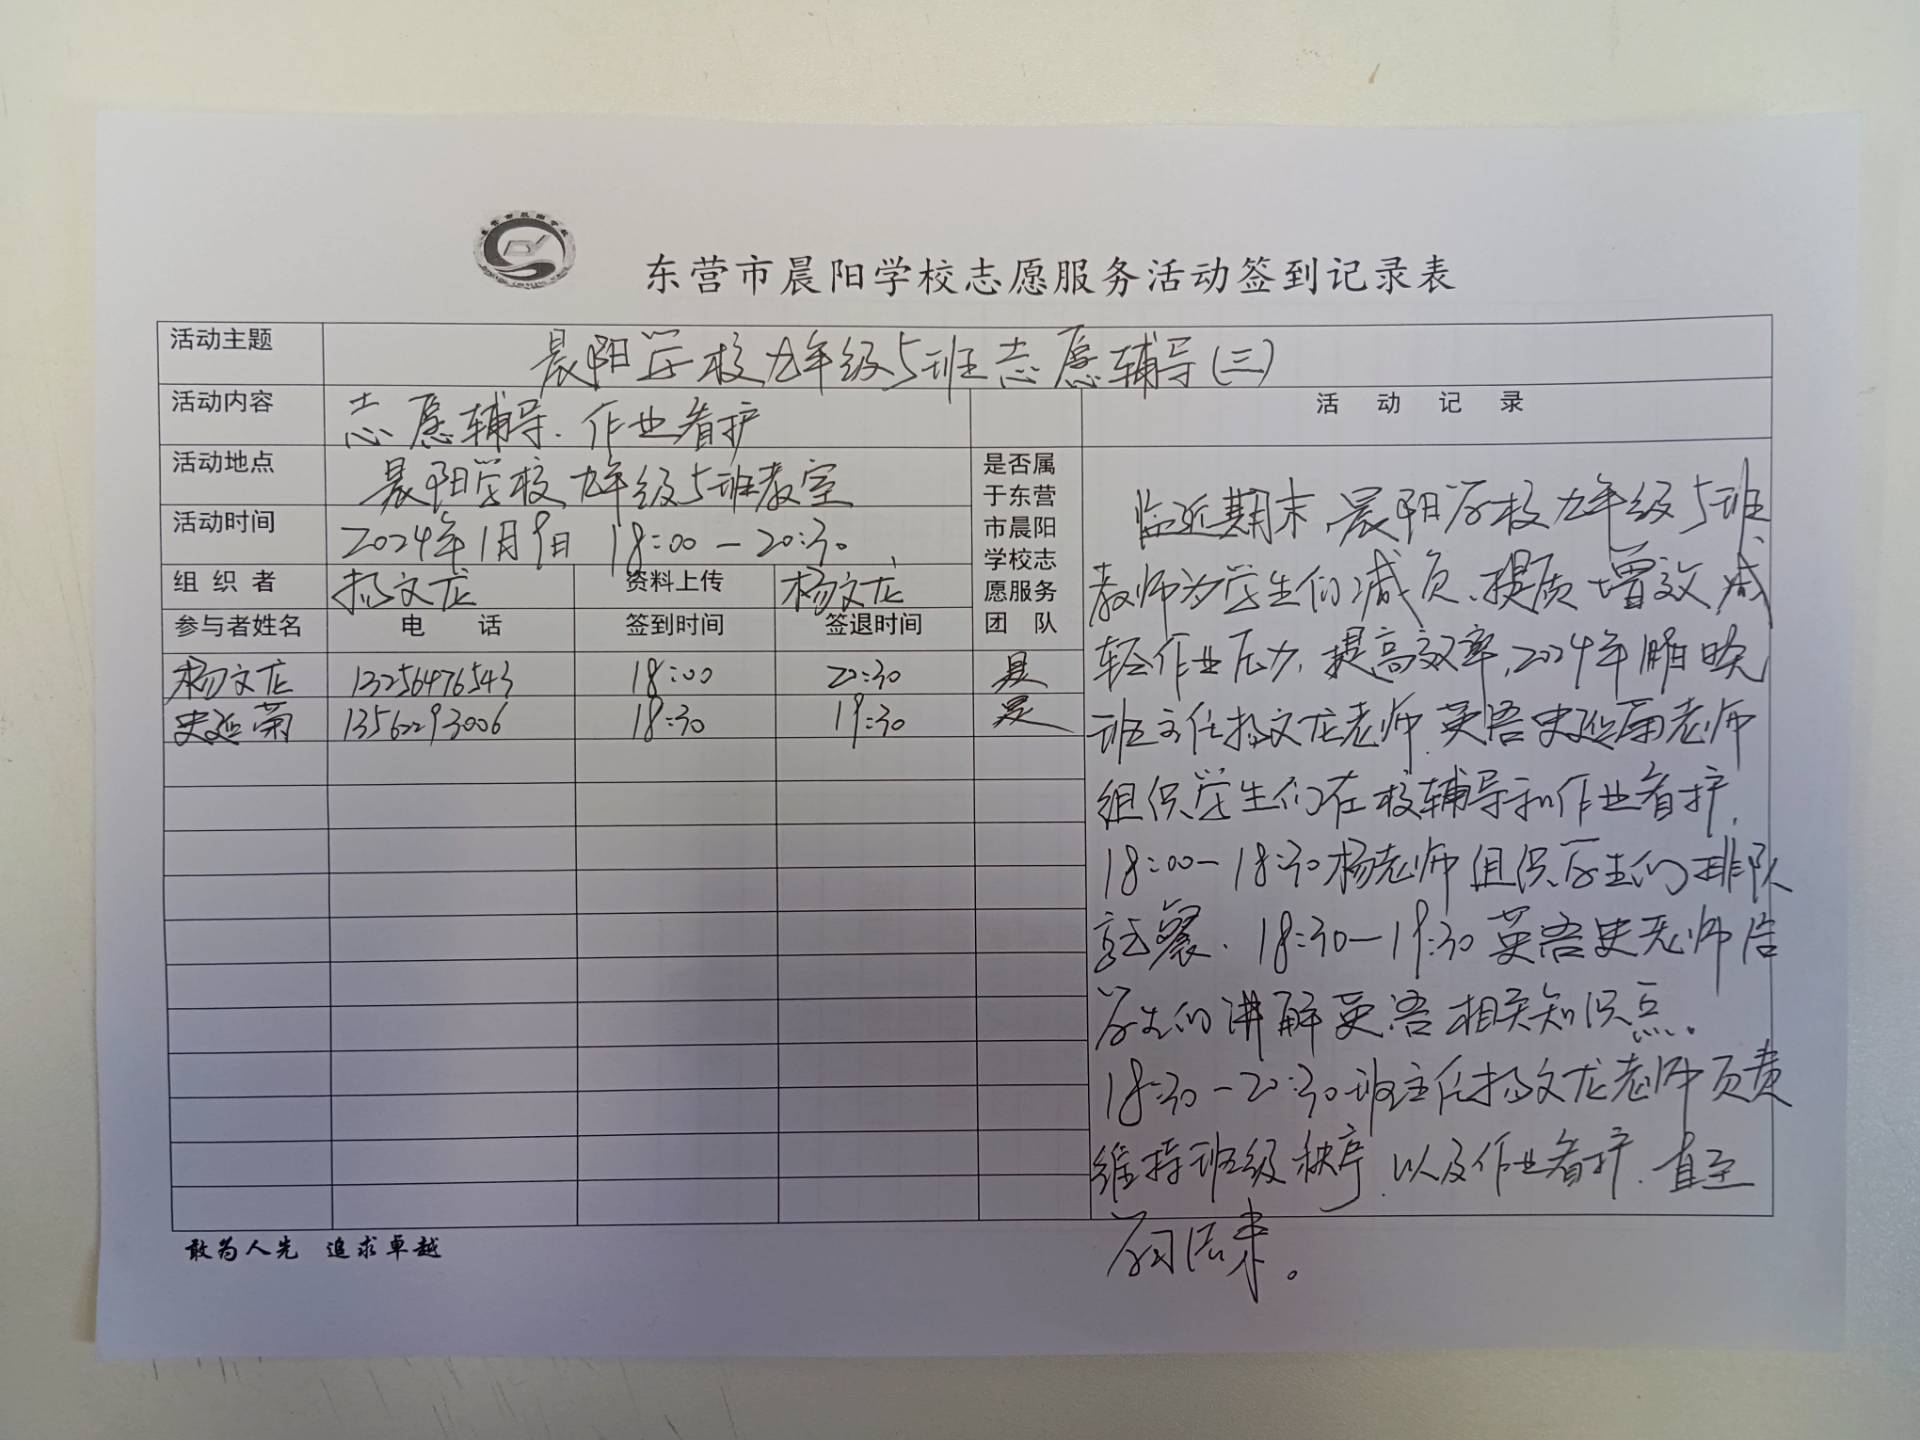 东营市晨阳学校志愿服务活动签到记录表
活动主题 晨阳学校九年级5班志愿辅导(三)
活动内容 志愿辅导、作业看护
活动地点 晨阳学校九年级5班教室
活动时间 2024年1月9日 18:00-20:30
组织者 杨文龙 资料上传 杨文龙
是否属
于东营
市晨阳
学校志
愿服务
团 队
参与者姓名 电 话 签到时间 签退时间
杨文龙 13256476543 18:00 20:30 是
史延菊 13562293006 18:30 19:30 是
活 动 记 录
临近期末,晨阳学校九年级5班
教师为学生们减负、提质增效,减
轻作业压力,提高效率,2024年1月9日晚
班主任杨文龙老师、英语史延菊老师
组织学生们在校辅导和作业看护,
18:00-18:30杨老师组织学生们排队
就餐、18:30-19:30英语史老师给
学生们讲解英语相关知识点。
18:30-20:30班主任杨文龙老师负责
维持班级秩序,以及作业看护,直至
学习结束。
敢为人先 追求卓越